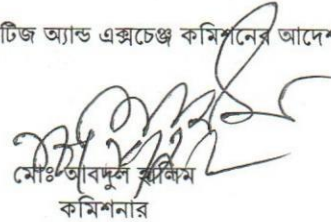 টিজ অ্যান্ড এক্সচেঞ্জ কমিশনের আদেশ
মোঃ আবদুল হালিম
কমিশনার